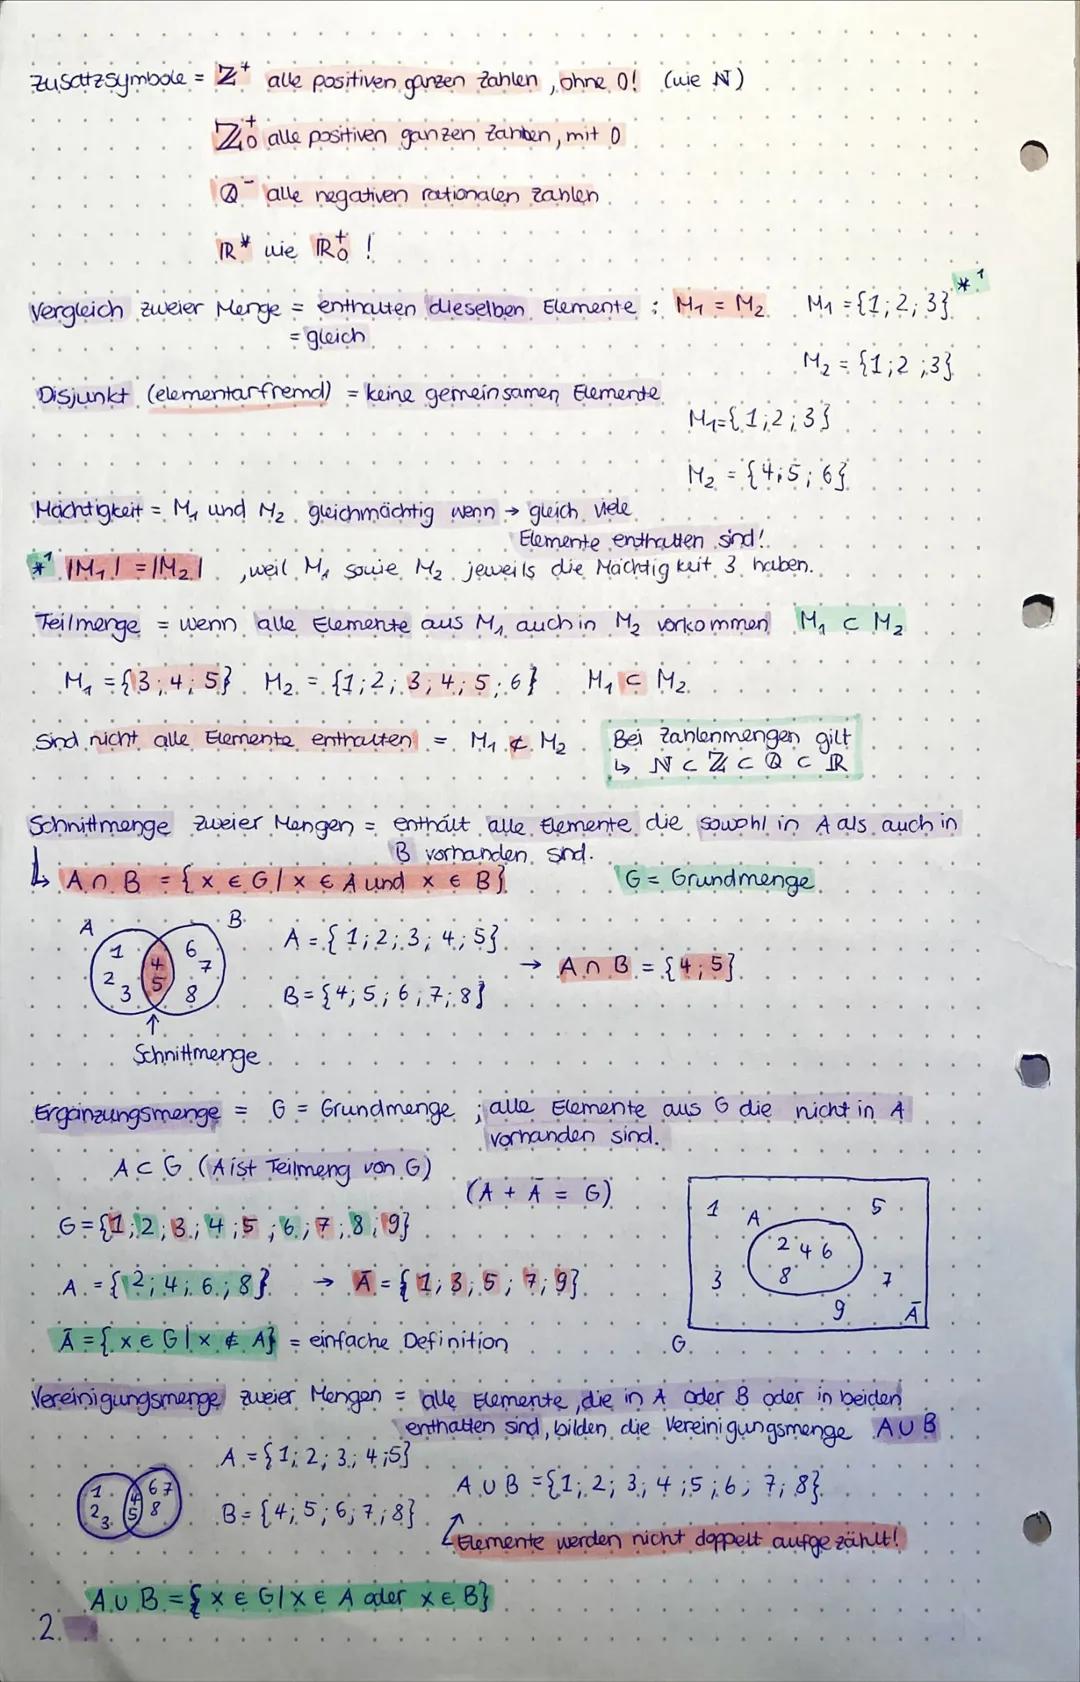 Zusatzsymbole = ℤ⁺ alle positiven ganzen Zahlen, ohne 0! (wie ℕ)
ℤ₀⁺ alle positiven ganzen Zahlen, mit 0
ℚ⁻ alle negativen rationalen Zahlen
ℝ* wie ℝ₀⁺ !
Vergleich zweier Menge = enthalten dieselben Elemente : M₁ = M₂ M₁ = {1; 2; 3} *¹
= gleich
M₂ = {1; 2 ; 3}
Disjunkt (elementarfremd) = keine gemeinsamen Elemente
M₁ = {1; 2 ; 3}
M₂ = {4; 5 ; 6}
Mächtigkeit = M₁ und M₂ gleichmächtig wenn → gleich viele
Elemente enthalten sind!
*¹ |M₁| = |M₂| , weil M₁ sowie M₂ jeweils die Mächtigkeit 3 haben.
Teilmenge = wenn alle Elemente aus M₁ auch in M₂ vorkommen M₁ ⊂ M₂
M₁ = {3; 4; 5} M₂ = {1; 2; 3; 4; 5; 6} M₁ ⊂ M₂
Sind nicht alle Elemente enthalten = M₁ ⊄ M₂
Bei Zahlenmengen gilt
↳ ℕ ⊂ ℤ ⊂ ℚ ⊂ ℝ
Schnittmenge zweier Mengen = enthält alle Elemente die sowohl in A als auch in
B vorhanden sind.
↳ A ∩ B = {x ∈ G | x ∈ A und x ∈ B} G = Grundmenge
A B
1 2 3 4 5 6 7 8
A = {1; 2; 3; 4; 5}
→ A ∩ B = {4; 5}
B = {4; 5; 6; 7; 8}
↑
Schnittmenge
Ergänzungsmenge = G = Grundmenge ; alle Elemente aus G die nicht in A
vorhanden sind.
A ⊂ G (A ist Teilmeng von G)
(A + Ā = G)
G = {1; 2; 3; 4; 5; 6; 7; 8; 9}
A = {2; 4; 6; 8} → Ā = {1; 3; 5; 7; 9}
1 A 5
2 4 6
3 8 7
9 Ā
G
Ā = {x ∈ G | x ∉ A} = einfache Definition
Vereinigungsmenge zweier Mengen = alle Elemente, die in A oder B oder in beiden
enthalten sind, bilden die Vereinigungsmenge A ∪ B
A = {1; 2; 3; 4; 5}
1 2 3 4 5 6 7 8
A ∪ B = {1; 2; 3; 4; 5; 6; 7; 8}
B = {4; 5; 6; 7; 8}
Elemente werden nicht doppelt aufgezählt!
A ∪ B = {x ∈ G | x ∈ A oder x ∈ B}
2.